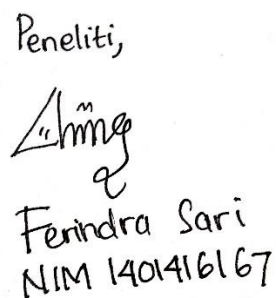 Peneliti,
Ferindra Sari
NIM 1401416167